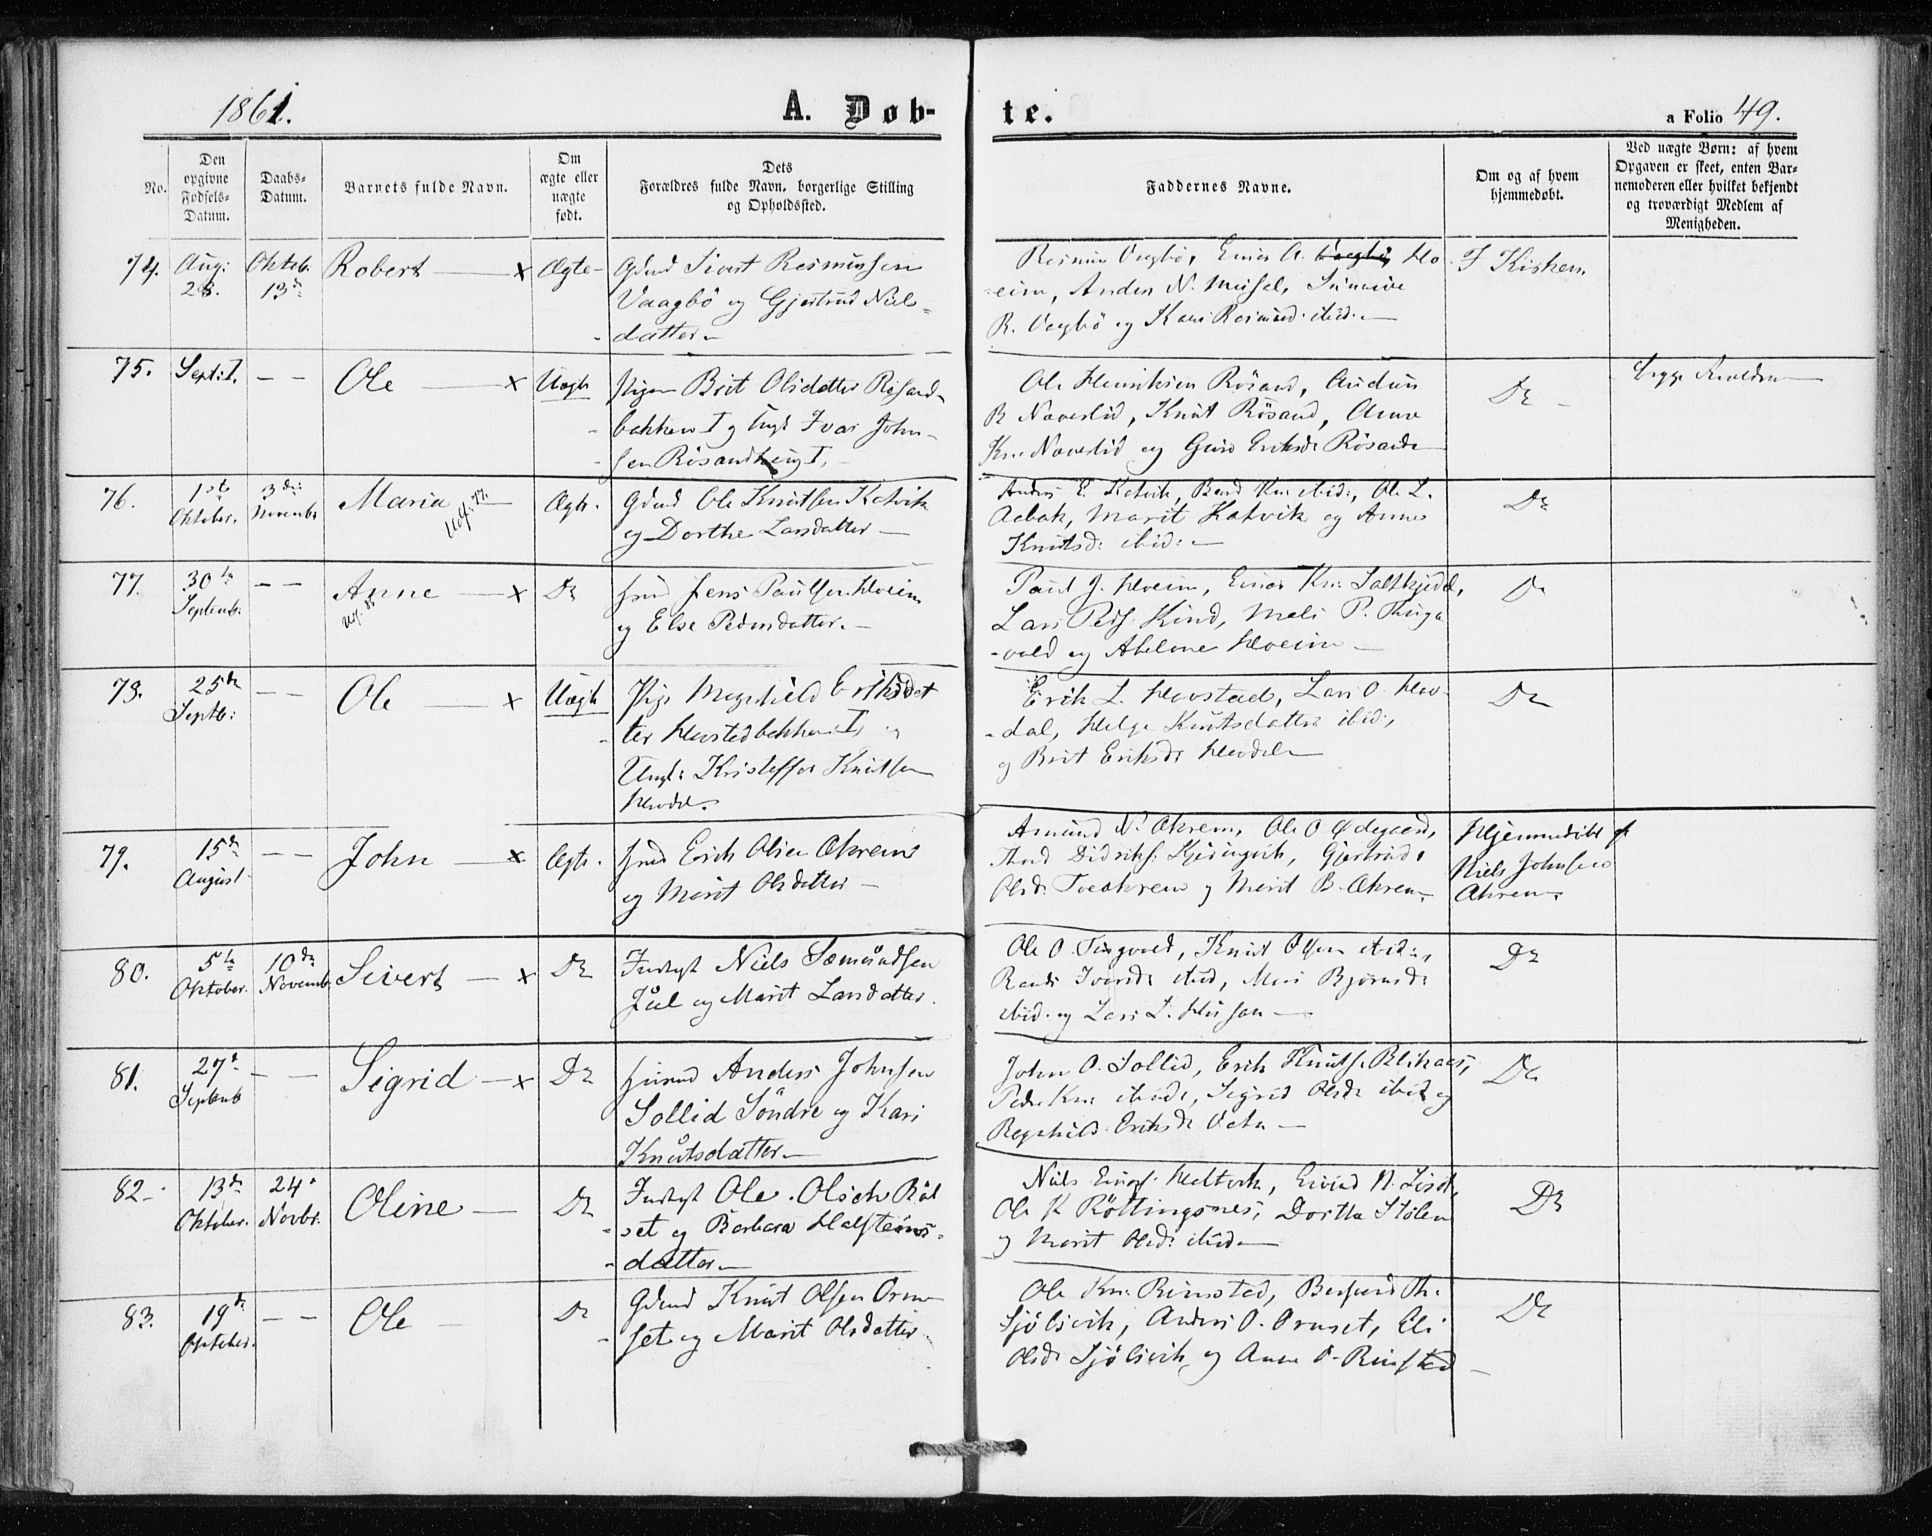 1861.
A. Døb-
te.
a Folio 49.
No.
Den opgivne Fødsels-Datum.
Daabs-Datum.
Barnets fulde Navn.
Om ægte eller uægte født.
Dets
Forældres fulde Navn, borgerlige Stilling
og Opholdssted.
Faddernes Navne.
Om og af hvem
hjemmedøbt.
Ved uægte Børn: af hvem
Opgaven er skeet, enten Bar-
nemoderen eller hvilket bekjendt
og troværdigt Medlem af
Menigheden.
74.
Aug:
28.
Oktob.
13de
Robert — x
Ægte
Gdmd Sivert Rasmussen
Vaagbö og Gjertrud Niels-
datter
Rasmus Vaagbö, Einar A. Vaagbö, Ho-
eim, Anders N. Meisal,
R. Vaagbö og Kari Rasmusd: ibid:
I Kirken
75.
Septr: 1.
— —
Ole — x
Uægte
Pigen Brit Olsdatter Rösand-
bakken I og Ungk Ivar John-
sen Rösandhaug I,
Ole Henriksen Rösand, Audun
R Naverlid, Knut Rösand, Anne
Kn. Naverlid og Guro Eriksd: Rösand
Do
Begge Forældre
76.
1ste
Oktober.
3die
Novembr
Maria
Udf. 77.
Ægte.
Gdmd Ole Knutsen Hatvik
og Dorthe Larsdatter
Anders E. Hatvik, Bard Kn. ibid:, Ole L.
Aabak, Marit Hatvik og Anne
Knutsd: ibid:
Do
77.
30te
Septemb:
— —
Anne — x
Do
Jens Paulsen Hoeim
og Else Pedersdatter.
Paul J. Hoeim, Einar Kn: Saltkjedel,
Lars Peds. Kind, Mali P. Tinga
-vold og Abelone Hoeim
Do
78.
25de
Septb:
— —
Ole — x
Uægte
Pige Magnhild Eriksdat
ter Havstadbakken I, og
Ungk: Kristoffer Knutsen
Havdal.
Erik L. Havstad, Lars O. Hav-
dal, Helge Knutsdatter ibid:,
og Brit Eriksd: Havdal
Do
79.
15de
August
— —
John — x
Ægte.
Erich Olsen Akrem
og Marit Olsdatter
Amund N. Akrem, Ole O Ødegaard,
And Didriks. Kjeingvik, Gjertrud
Olsd: Toeakrem og Marit B. Akrem.
Hjemmedöbt af
Niels Johnsen
Akrem.
80.
5te
Oktober.
10de
Novemb.
Sivert — x
Do
Inderst Niels Sæmundsen
Jül og Marit Larsdatter.
Ole O. Tingvold, Knut Olsen ibid:,
Randi Ivarsd: ibid, Mari Bjørnsd:
ibid. og Lars L.
Do
81.
27de
Septemb
— —
Sigrid — x
Do
Anders Johnsen
Sollid Söndre og Kari
Knutsdatter
John O. Sollid, Erik Knuts. Blikaas,
Peder Kn: ibid:, Sigrid Olsd: ibid og
Ragnhild Eriksd:
Do
82
13de
Oktober.
24de
Novbr.
Oline —
Do
Inderst Ole Olsen Röt
set og Barbara Halsteins-
-datter
Niels Einars. Heltvik, Eivind N.
Ole K Röttingsnes, Dorthe Stölen
og Marit Olsd: ibid
Do
83.
19de
Oktober.
— —
Ole —
Do
Gdmd Knut Olsen Orm
set og Marit Olsdatter.
Ole Kn: Rimstad, Th:
Sjölsvik, Anders O. Ormset, Eli
Olsd: Sjölsvik og Anne O. Rimstad
Do